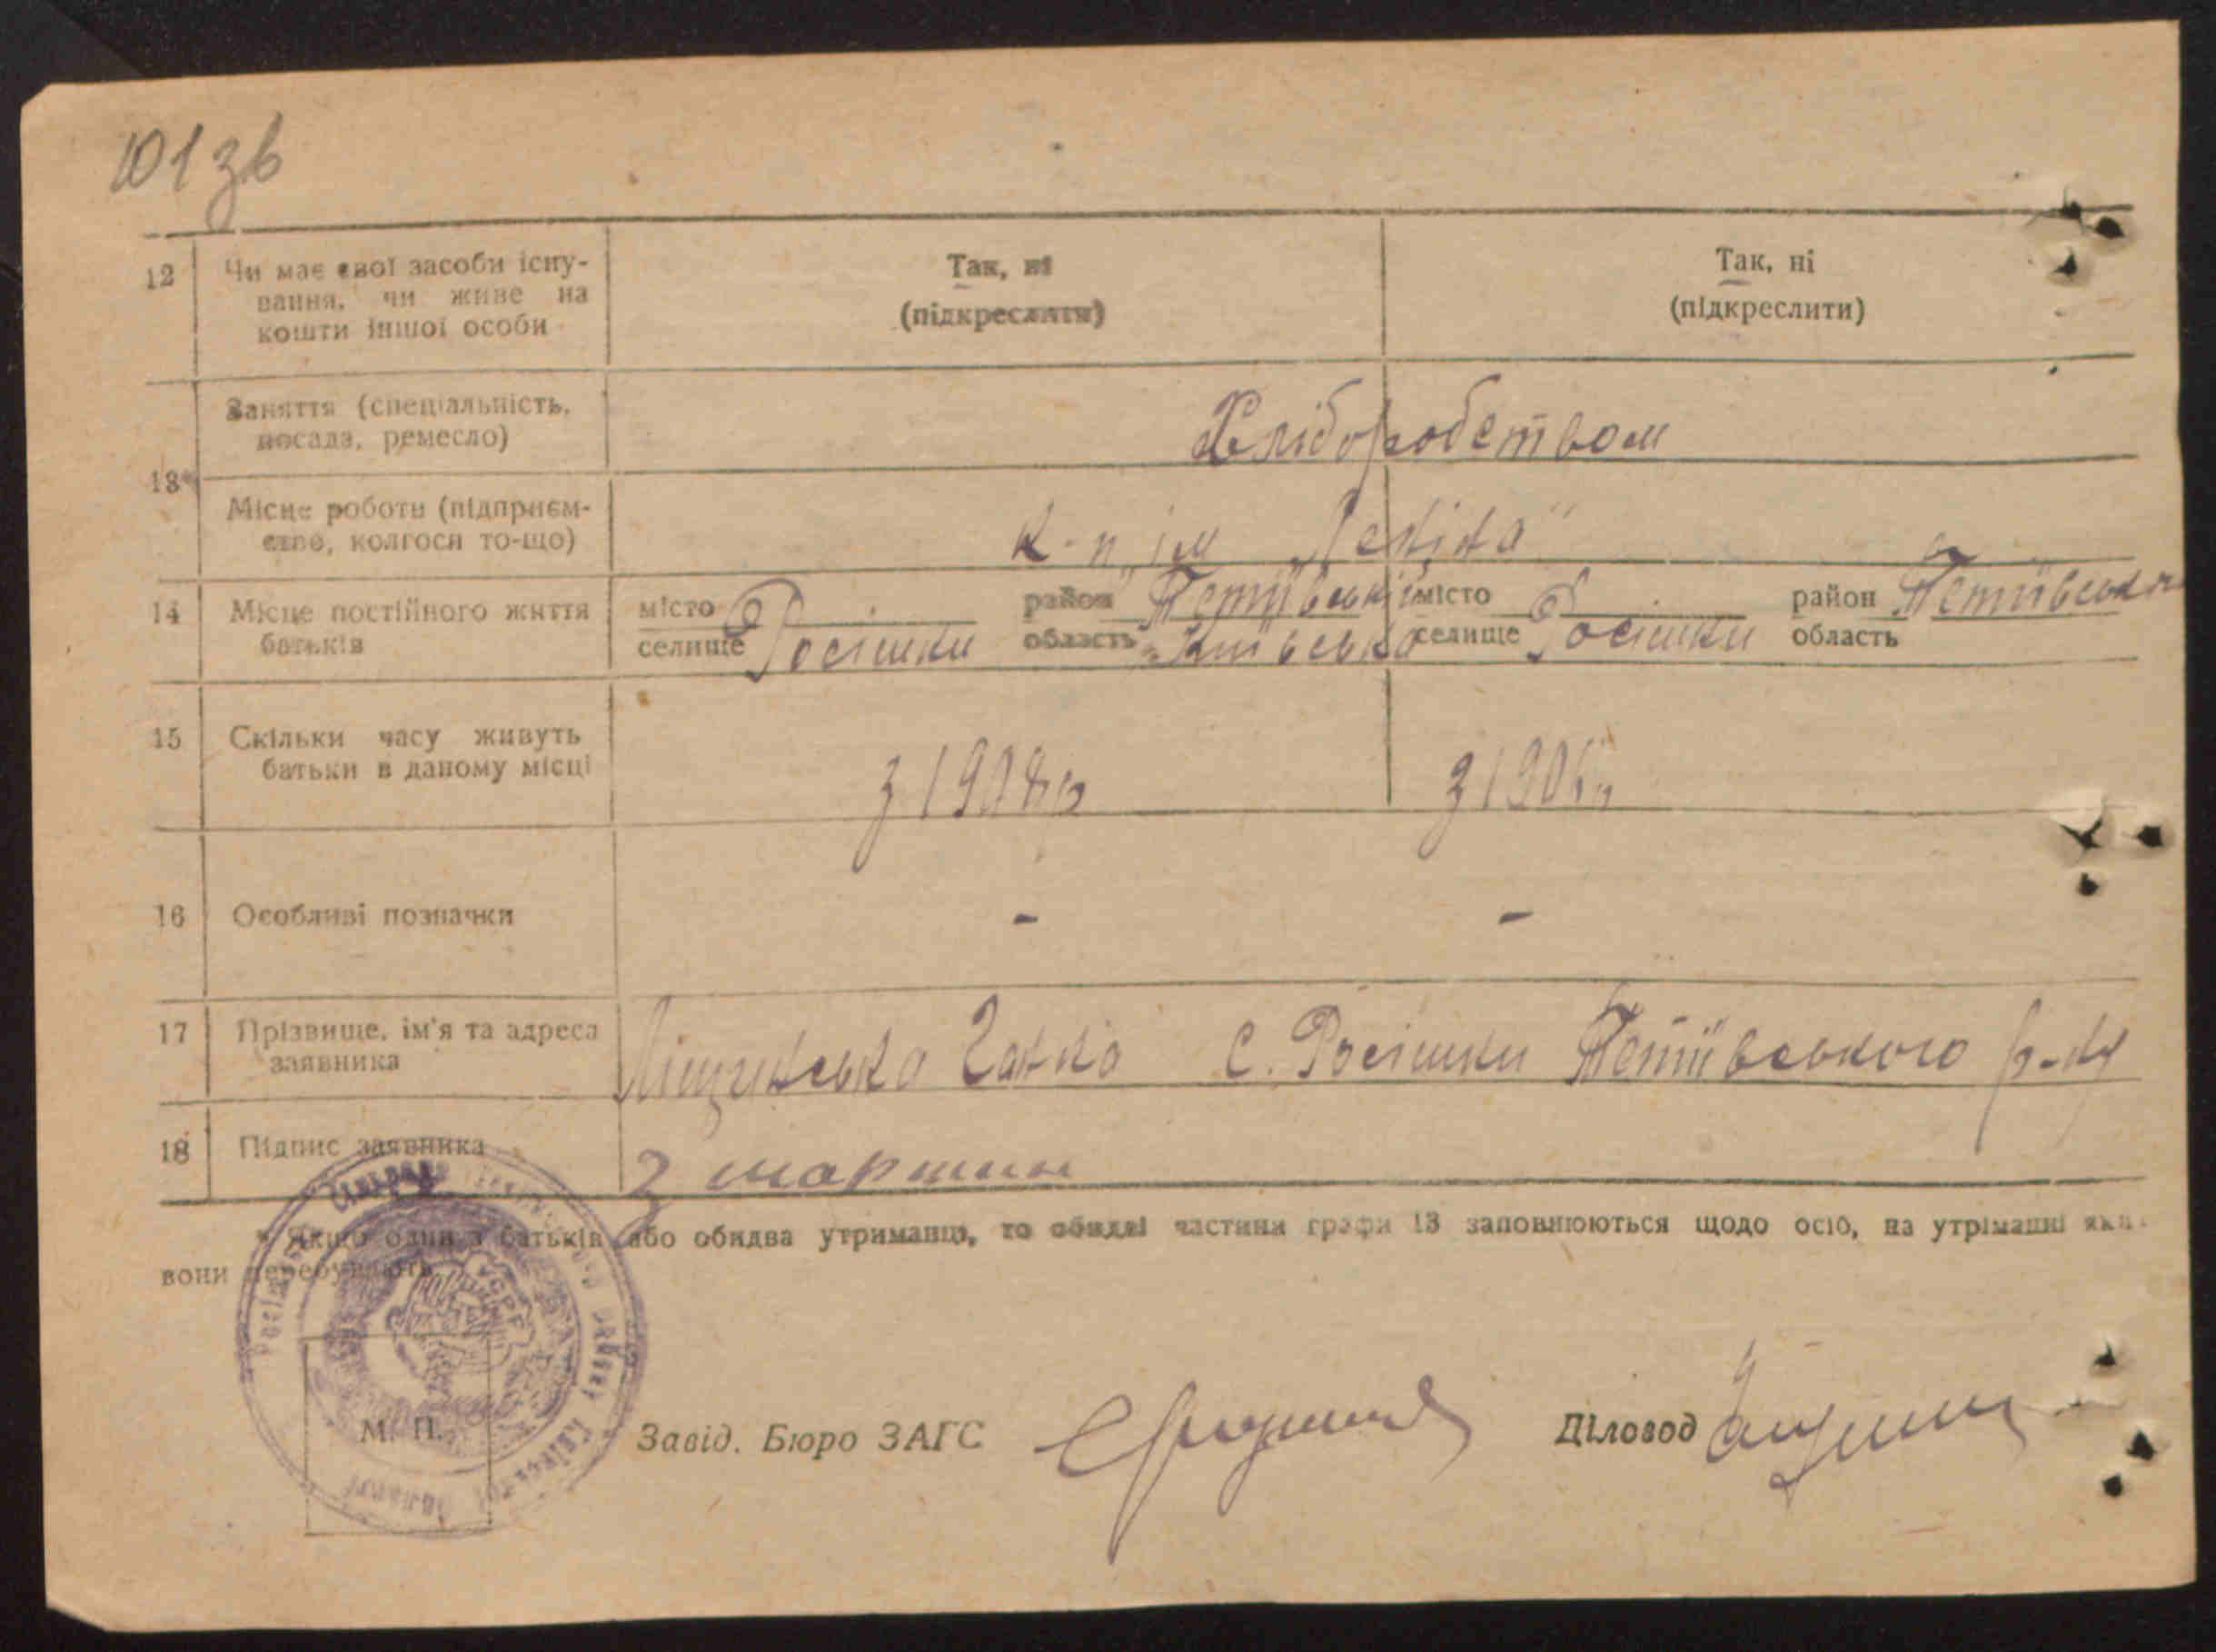 101 зв
12 Чи має свої засоби існу-
вання, чи живе на
кошти іншої особи
Так, ні
(підкреслити)
Так, ні
(підкреслити)
13*
Заняття (спеціальність,
посада, ремесло)
Хліборобством
Місце роботи (підприєм-
ство, колгосп то-що)
к-п ім „Леніна"
14 Місце постійного життя
батьків
місто
селище Росішки
район Тетіївський
область Київська
місто
селище Росішки
район Тетіївськи
область
15 Скільки часу живуть
батьки в даному місці
з 1908 р
з 190
16 Особливі позначки
- -
17 Прізвище, ім'я та адреса
заявника
Ліщинська Ганна с. Росішки Тетіївського р-ну
18 Підпис заявника
* Якщо один з батьків або обидва утриманці, то обидві частини графи 13 заповнюються щодо осіб, на утриманні яких
вони перебувають
УСРР
М. П.
Завід. Бюро ЗАГС
Діловод